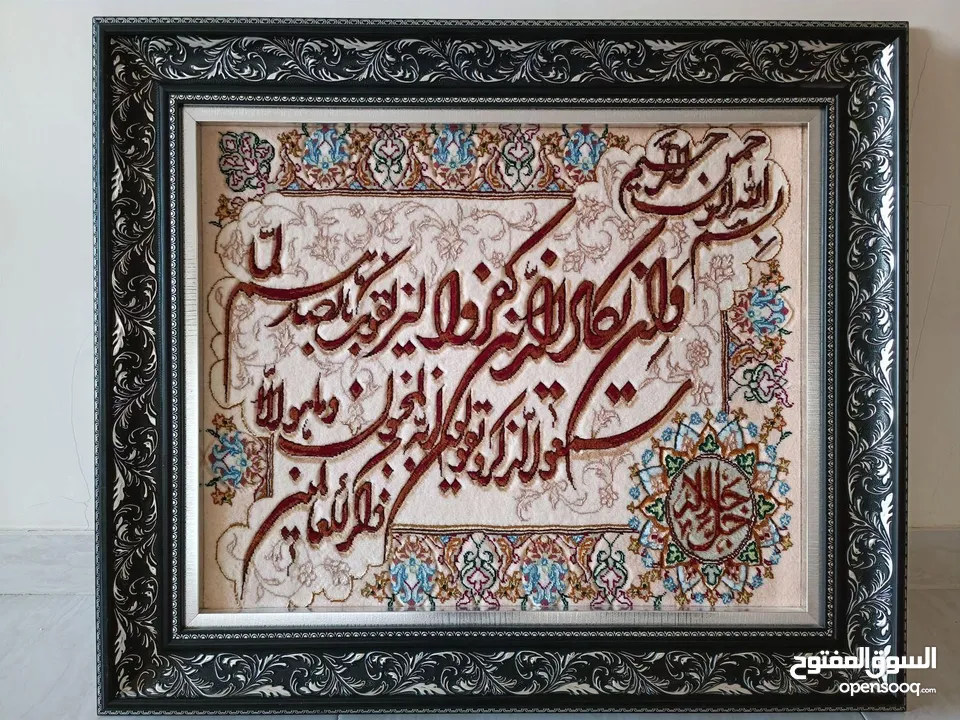 بسم الله الرحمن الرحیم
وان یکاد الذین کفروا لیزلقونک بابصارهم لما
سمعوا الذکر و یقولون انه لمجنون وما هو الا
ذکر للعالمین
جل جلاله
السوق المفتوح
opensooq.com